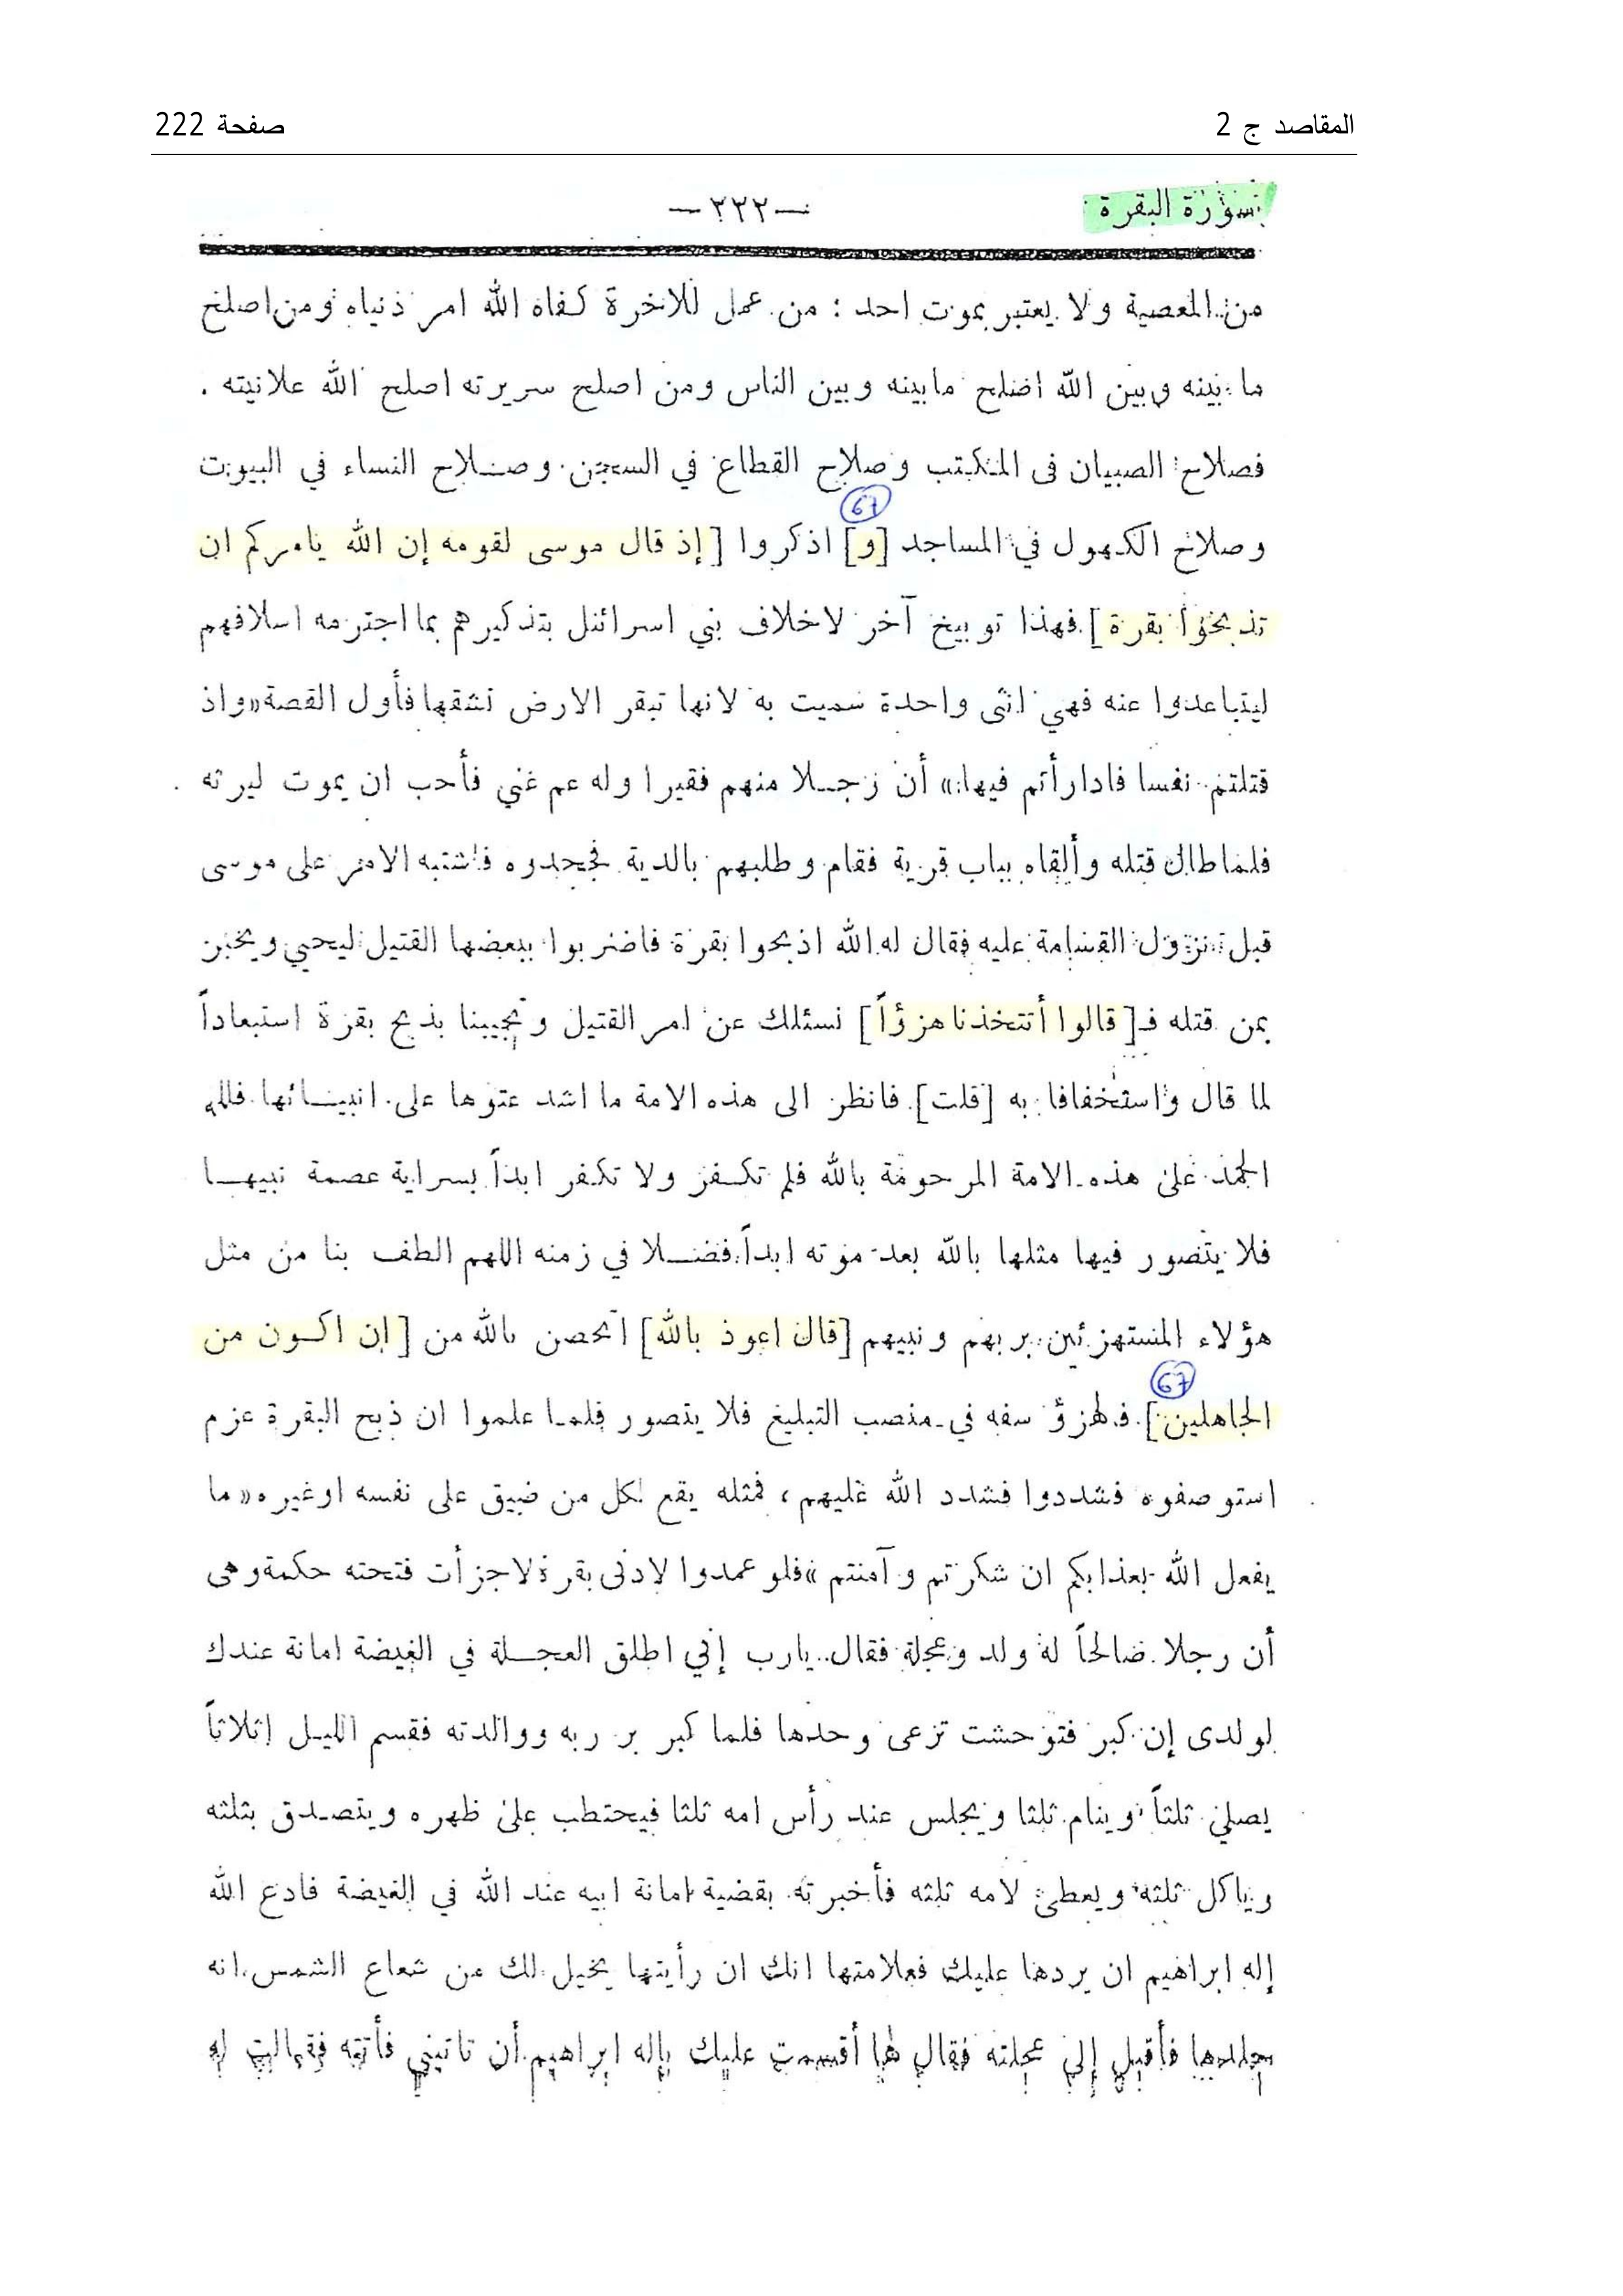 المقاصد ج 2
صفحة 222
سورة البقرة
— ٢٢٢ —
من المعصية ولا يعتبر بموت احد : من عمل للاخرة كفاه الله امر دنياه ومن اصلح
ما بينه وبين الله اصلح مابينه وبين الناس ومن اصلح سريرته اصلح الله علانيته .
فصلاح الصبيان فى المكتب وصلاح القطاع في السجن وصلاح النساء في البيوت
67
وصلاح الكهول في المساجد [و] اذكروا [إذ قال موسى لقومه إن الله يامركم ان
تذبحوا بقرة] فهذا توبيخ آخر لاخلاف بني اسرائل بتذكيرهم بما اجترمه اسلافهم
ليتباعدوا عنه فهي انثى واحدة سميت به لانها تبقر الارض تشقها فأول القصة «واذ
قتلتم نفسا فادارأتم فيها» أن رجلا منهم فقيرا وله عم غني فأحب ان يموت ليرثه
فلما طال قتله وألقاه بباب قرية فقام وطلبهم بالدية فجحدوه فاشتبه الامر على موسى
قبل نزول القسامة عليه فقال له الله اذبحوا بقرة فاضربوا ببعضها القتيل ليحيي ويخبر
بمن قتله فـ[قالوا أتتخذنا هزؤاً] نسئلك عن امر القتيل وتجيبنا بذبح بقرة استبعاداً
لما قال واستخفافا به [قلت] فانظر الى هذه الامة ما اشد عتوها على انبيائها فلله
الحمد على هذه الامة المرحومة بالله فلم تكفر ولا تكفر ابداً بسراية عصمة نبيها
فلا يتصور فيها مثلها بالله بعد موته ابداً فضلا في زمنه اللهم الطف بنا من مثل
هؤلاء المستهزئين بربهم ونبيهم [قال اعوذ بالله] اتحصن بالله من [ان اكون من
67
الجاهلين] فالهزؤ سفه في منصب التبليغ فلا يتصور فلما علموا ان ذبح البقرة عزم
استوصفوه فشددوا فشدد الله عليهم ، فمثله يقع لكل من ضيق على نفسه اوغيره «ما
يفعل الله بعذابكم ان شكرتم وآمنتم» فلو عمدوا لادنى بقرة لاجزأت فتحته حكمة وهى
أن رجلا صالحاً له ولد وعجلة فقال يارب إني اطلق العجلة في الغيضة امانة عندك
لولدى إن كبر فتوحشت ترعى وحدها فلما كبر بر ربه ووالدته فقسم الليل اثلاثاً
يصلي ثلثاً وينام ثلثا ويجلس عند رأس امه ثلثا فيحتطب على ظهره ويتصدق بثلثه
وياكل ثلثه ويعطى لامه ثلثه فأخبرته بقضية امانة ابيه عند الله في الغيضة فادع الله
إله ابراهيم ان يردها عليك فعلامتها انك ان رأيتها يخيل لك من شعاع الشمس انه
جلدها فأقبل إلى عجلته فقال لها أقسمت عليك بإله ابراهيم أن تاتيني فأتته فقالت له